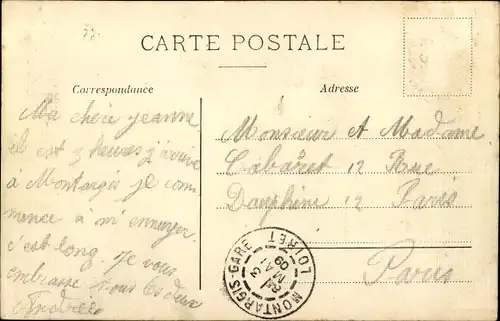 CARTE POSTALE
Correspondance
Adresse
Ma chère jeanne
il est 3 heures j'arrive
à Montargis je com
mence à m'ennuyer
c'est long. je vous
embrasse tous les deux
Andrée
Monsieur A Madame
Cabaret 12 Rue
Dauphine 12 Paris
Paris
MONTARGIS-GARE
LOIRET
3
MAI
09